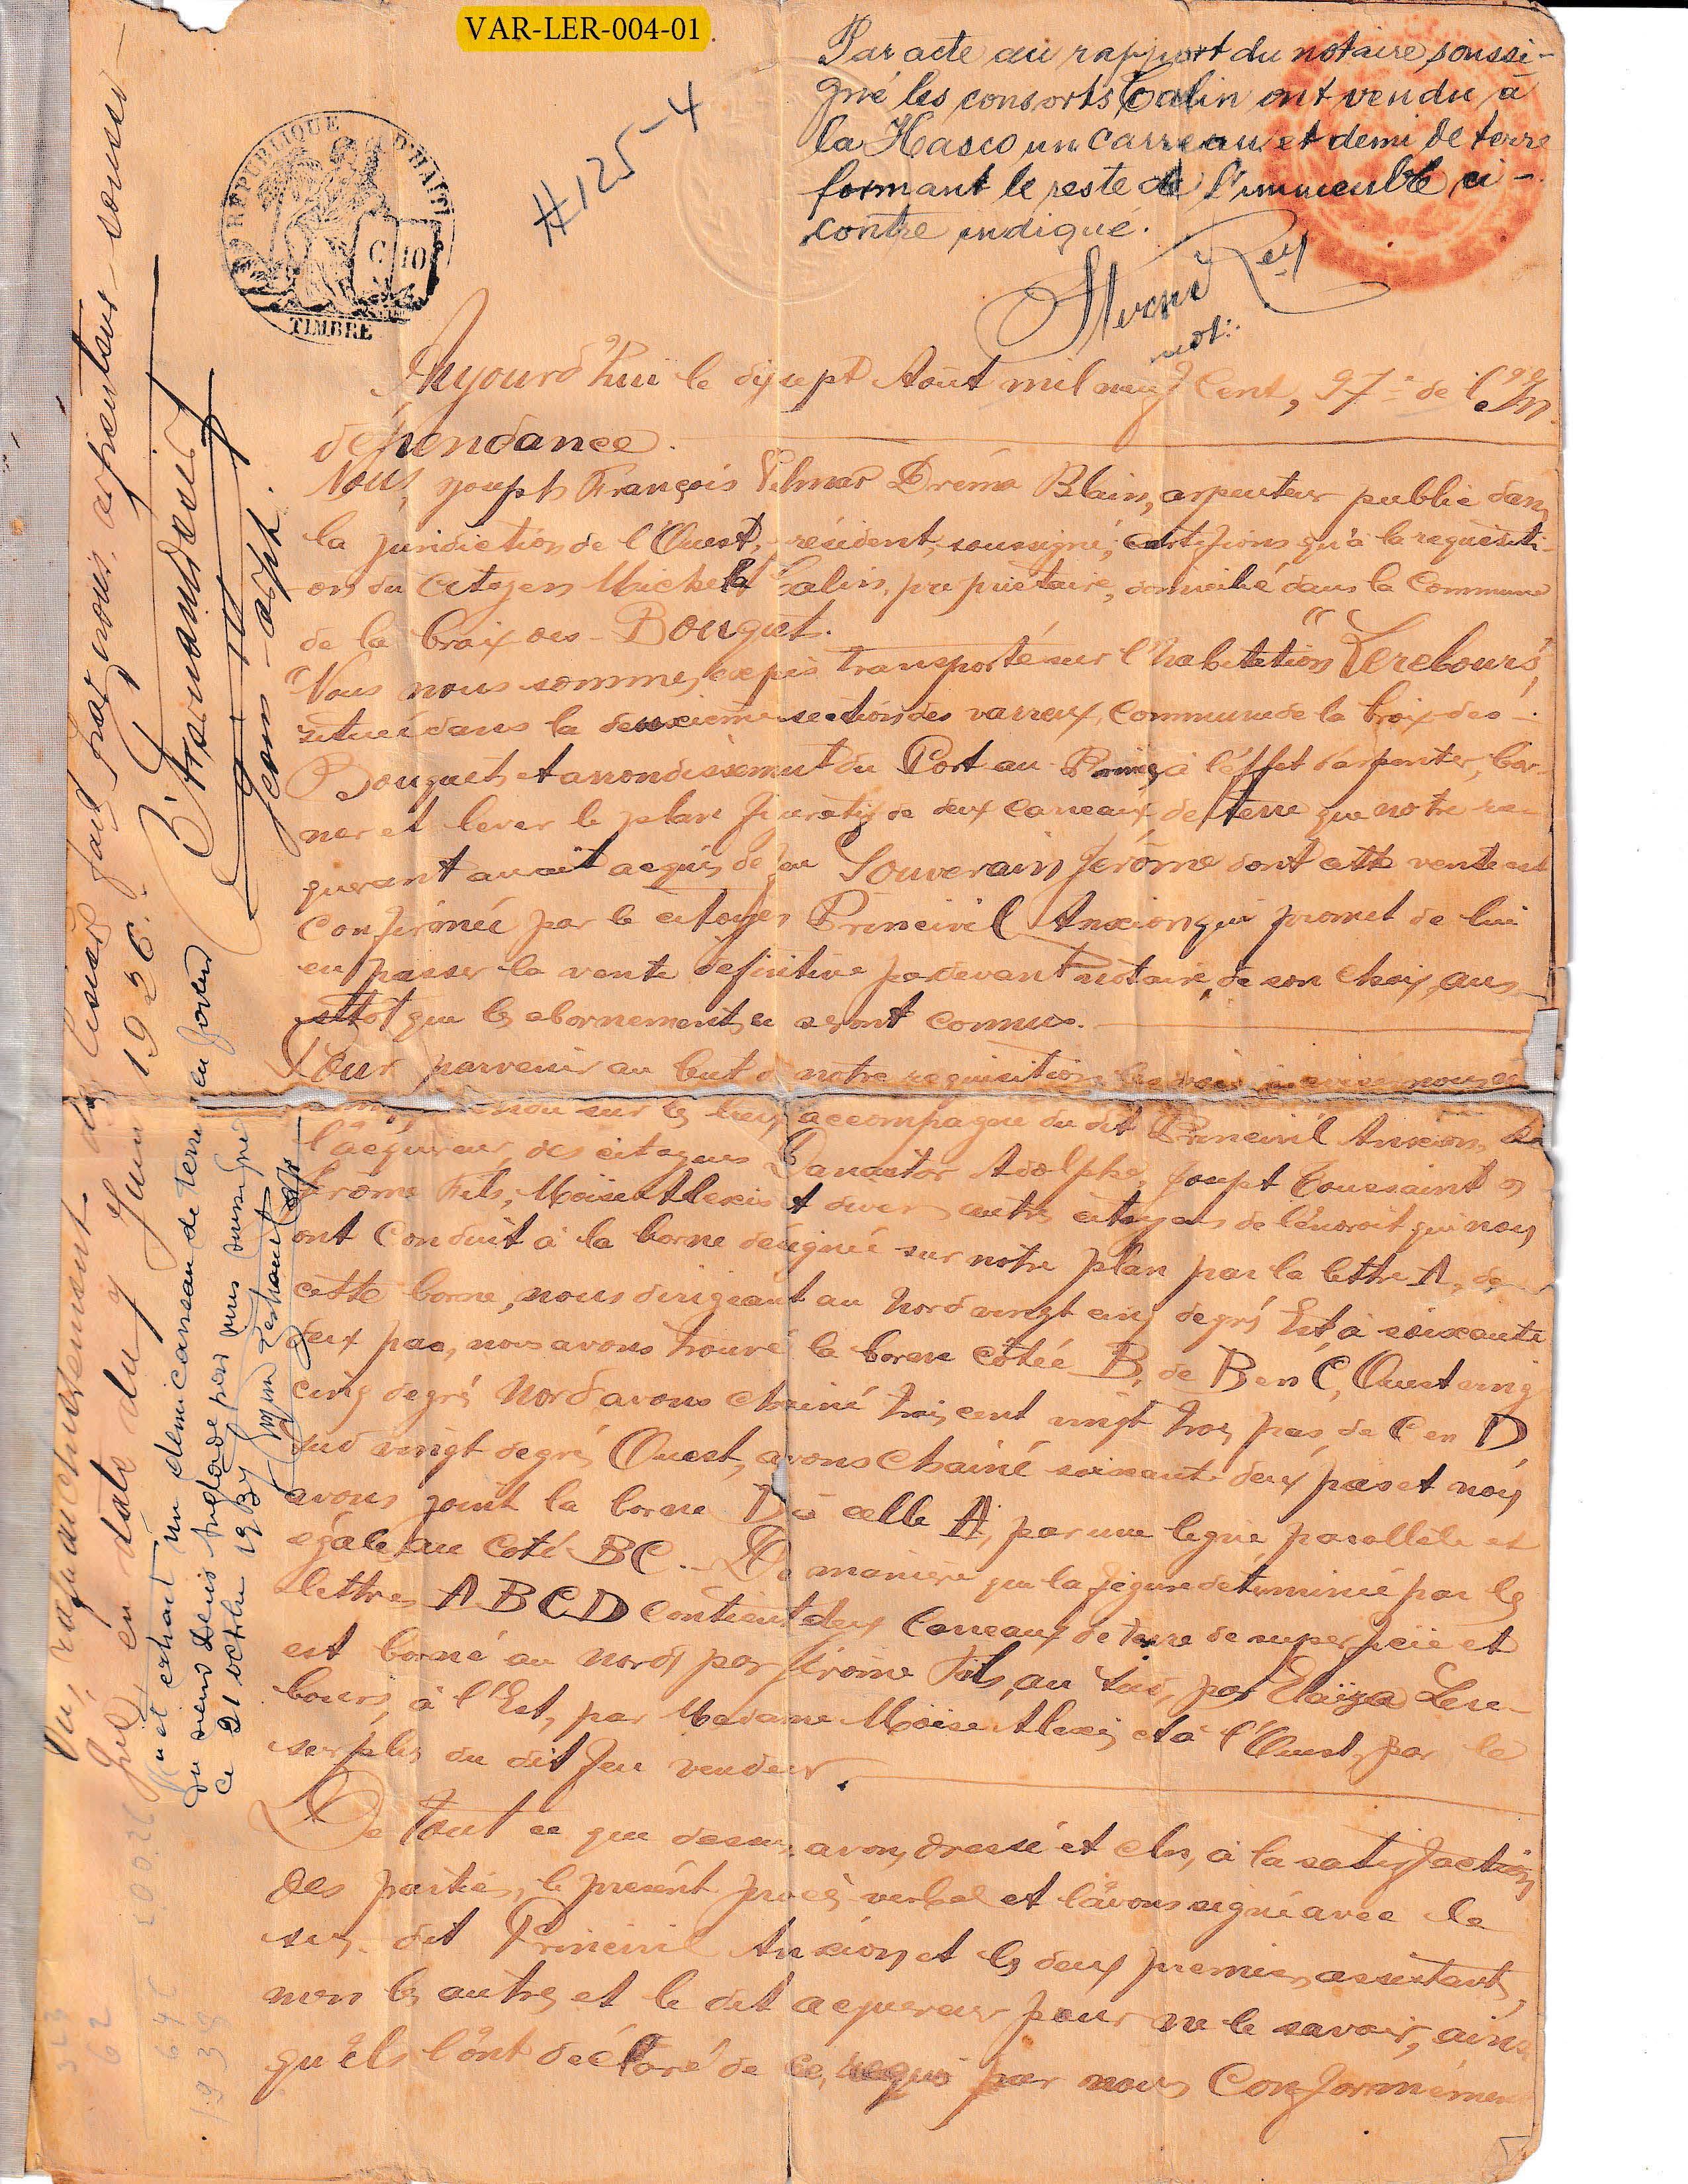 VAR-LER-004-01
#125-4
Par acte au rapport du notaire soussi-
gné les consorts Calin ont vendu à
la Hasco un carreau et demi de terre
formant le reste de l'immeuble ci-
contre indiqué.
not:
REPUBLIQUE D'HAITI
C 10
TIMBRE
Aujourd'hui le dix sept Août mil neuf Cent, 97e de l'In
dépendance.
Nous, Joseph François Vilmar Dréma Blain, arpenteur public dans
la juridiction de l'Ouest, résident, soussigné, certifions qu'à la requisiti-
on du citoyen Michel Calin, propriétaire, domicilié dans la Commune
de la Croix des-Bouquet.
Nous nous sommes exprès transporté sur l'habitation "Lerebours",
située dans la deuxième section des varreux, Commune de la Croix-des-
Bouquets et arrondissement du Port au Prince à l'effet d'arpenter, bor-
ner et lever le plan figuratif de deux carreaux de terre que notre re-
querant avait acquis de feu Souverain Jérôme dont cette vente est
confirmée par le citoyen Princivil Anxion qui promet de lui
en passer la vente définitive pardevant notaire de son choix, aus-
sitôt que les abornements en seront connus.
Pour parvenir au but de notre requisition
sur les lieux accompagné du dit Princivil Anxion, de
l'acquéreur, des citoyens Adolphe, Joseph Toussaint
Jérôme Fils, Moise Alexis et divers autres citoyens de l'endroit qui nous
ont conduit à la borne désignée sur notre plan par la lettre A, de
cette borne, nous dirigeant au Nord vingt cinq degrés Est à soixante
deux pas, nous avons trouvé la borne côtée B, de B en C, Ouest cinq
cinq degré Nord avons chainé trois cent vingt trois pas, de C en D
sud vingt degrés Ouest, avons chainé soixante deux pas et nous
avons joint la borne D à celle A, par une ligne parallèle et
égale au coté BC.- De manière que la figure déterminée par les
lettres ABCD contient deux Carreaux de terre de superficie et
est borné au nord par Jérôme Fils, au Sud, par Elaïza Lere-
bours, à l'Est, par Madame Moise Alexis et à l'Ouest, par le
surplus du dit feu vendeur.
De tout ce que dessus, avons dressé et clos, à la satisfaction
des parties, le présent procès verbal et l'avons signé avec le
sus-dit Princivil Anxion et les deux premiers assistants,
non les autres et le dit acquéreur pour ne le savoir, ainsi
qu'ils l'ont déclaré de ce, requis par nous Conformément
Vu, rafraichissement des lisières fait par nous, arpenteur sousi-
gné, en date du 7 Juin 1926.
Vu et extrait un demi carreau de terre en faveur
du sieur Louis Anglade par nous soussigné
ce 21 octobre
323
62
646
1938